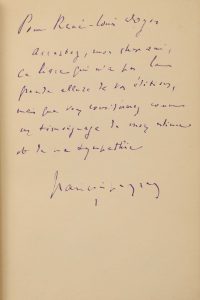 Pour René-Louis Doyon
Acceptez, mon cher ami,
ce livre qui n'a pas la
grande allure de vos éditions,
mais que vous considérerez comme
un témoignage de mon estime
et de ma sympathie